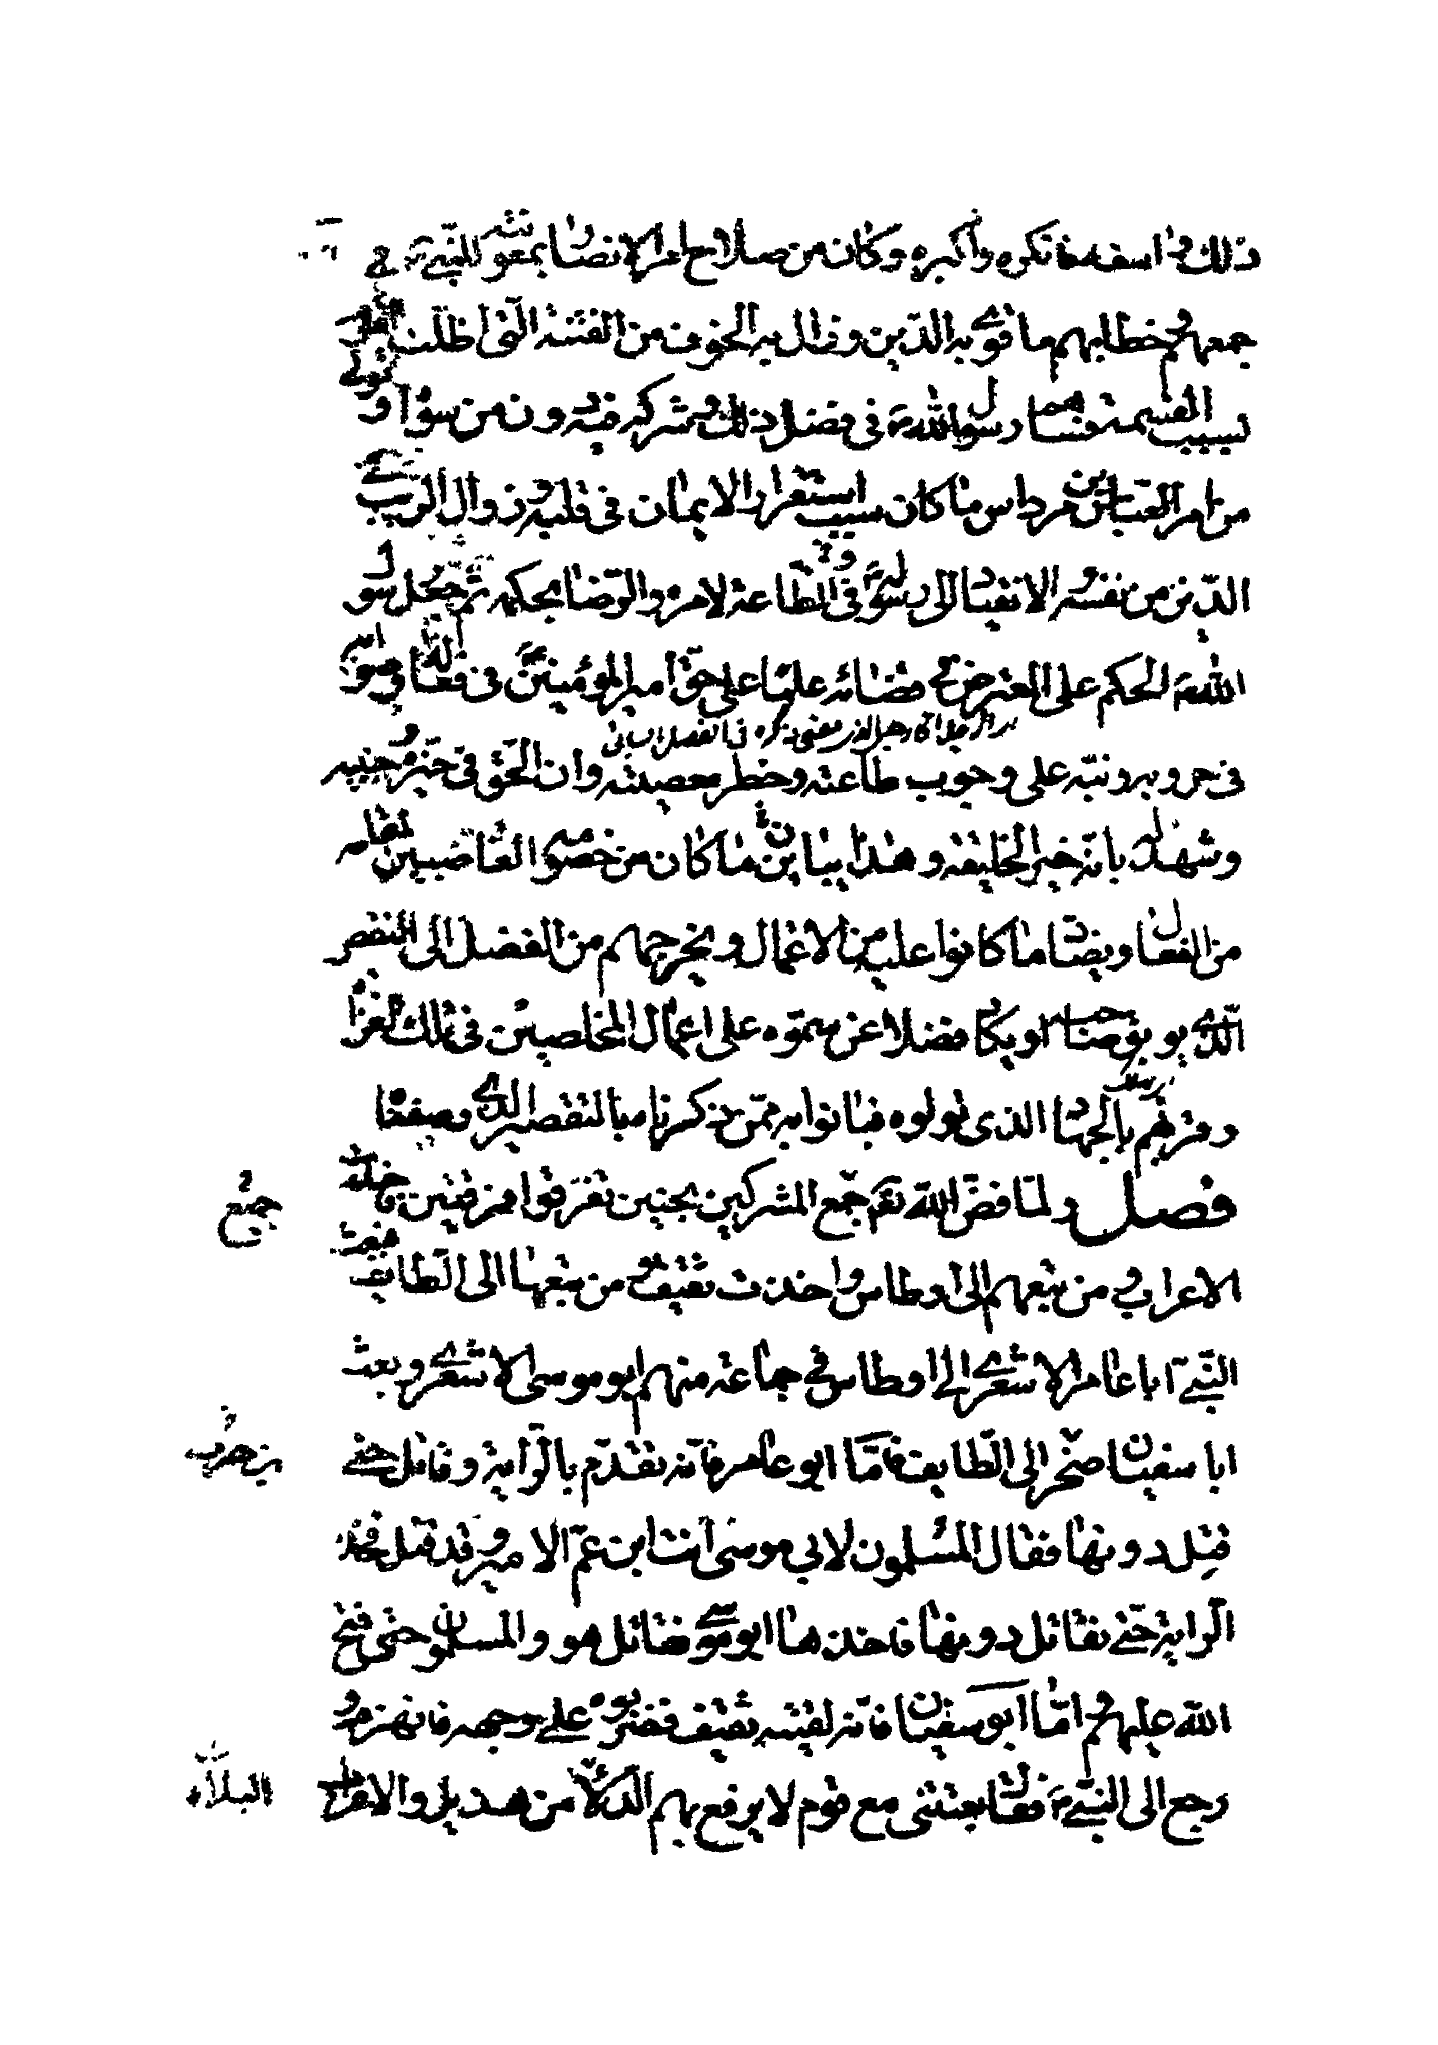 ذلك واسفه فانكره واكبره وكان من صلاح امر الانصار بمعونته للنبي ص في
جمعهم وخطابهم ما قوي به الدين وزال به الخوف من الفتنة التي اظلت
بسبب القسمة فساهم رسول الله ص في فضل ذلك وشركه فيه دون من سواه وتولى
من امر العباس بن مرداس ما كان سبب استقرار الايمان في قلبه وزوال الريب في
الدين من نفسه والانقياد الى رسول الله ص في الطاعة لامره والرضا بحكمه ثم جعل رسول
الله ص الحكم على المعترض في قضائه علما على حق امير المؤمنين ع في فعاله وصوابه
في حروبه ونبه على وجوب طاعته وحظر معصيته وان الحق في حيزه وجنبيه
وشهد له بانه خير الخليقة وهذا يباين ما كان من خصومه الغاصبين لمقامه
من الفعال ويضاد ما كانوا عليه من الاعمال ويخرجهم من الفضل الى النقص
الذي يوبق صاحبه او يكاد فضلا عن سموه على اعمال المخلصين في تلك الغزاة
وقربهم بالجهاد الذي تولوه فبانوا به ممن ذكرناه بالتقصير الذي وصفنا
فصل ولما فض الله تعالى جمع المشركين بحنين تفرقوا فرقتين فاخذت
الاعراب ومن تبعهم الى اوطاس واخذت ثقيف ومن تبعها الى الطايف فبعث
النبي ص ابا عامر الاشعري الى اوطاس في جماعة منهم ابو موسى الاشعري وبعث
ابا سفيان صخر الى الطايف فاما ابو عامر فانه تقدم بالراية وقاتل حتى
قتل دونها فقال المسلمون لابي موسى انت ابن عم الامير وقد قتل فخذ
الراية حتى نقاتل دونها فاخذها ابو موسى فقاتل هو والمسلمون حتى فتح
الله عليهم واما ابو سفيان فانه لقيته ثقيف فضربوه على وجهه فانهزم و
رجع الى النبي ص فقال بعثتني مع قوم لا يرفع بهم الدلاء من هذيل والاعراب
جميع
بن حرب
البلاء